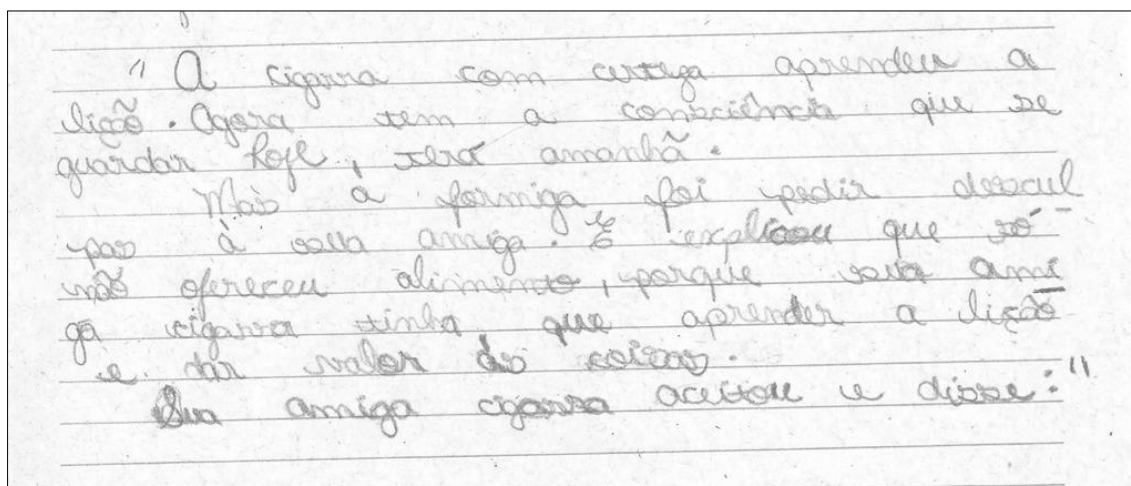 " A cigarra com certeza aprendeu a
lição. Agora tem a consciência que se
guardar hoje, terá amanhã.
Mais a formiga foi pedir descul
pas à sua amiga. E explicou que só
não ofereceu alimento, porque sua ami
ga cigarra tinha que aprender a lição
e dar valor às coisas.
Sua amiga cigarra aceitou e disse: "